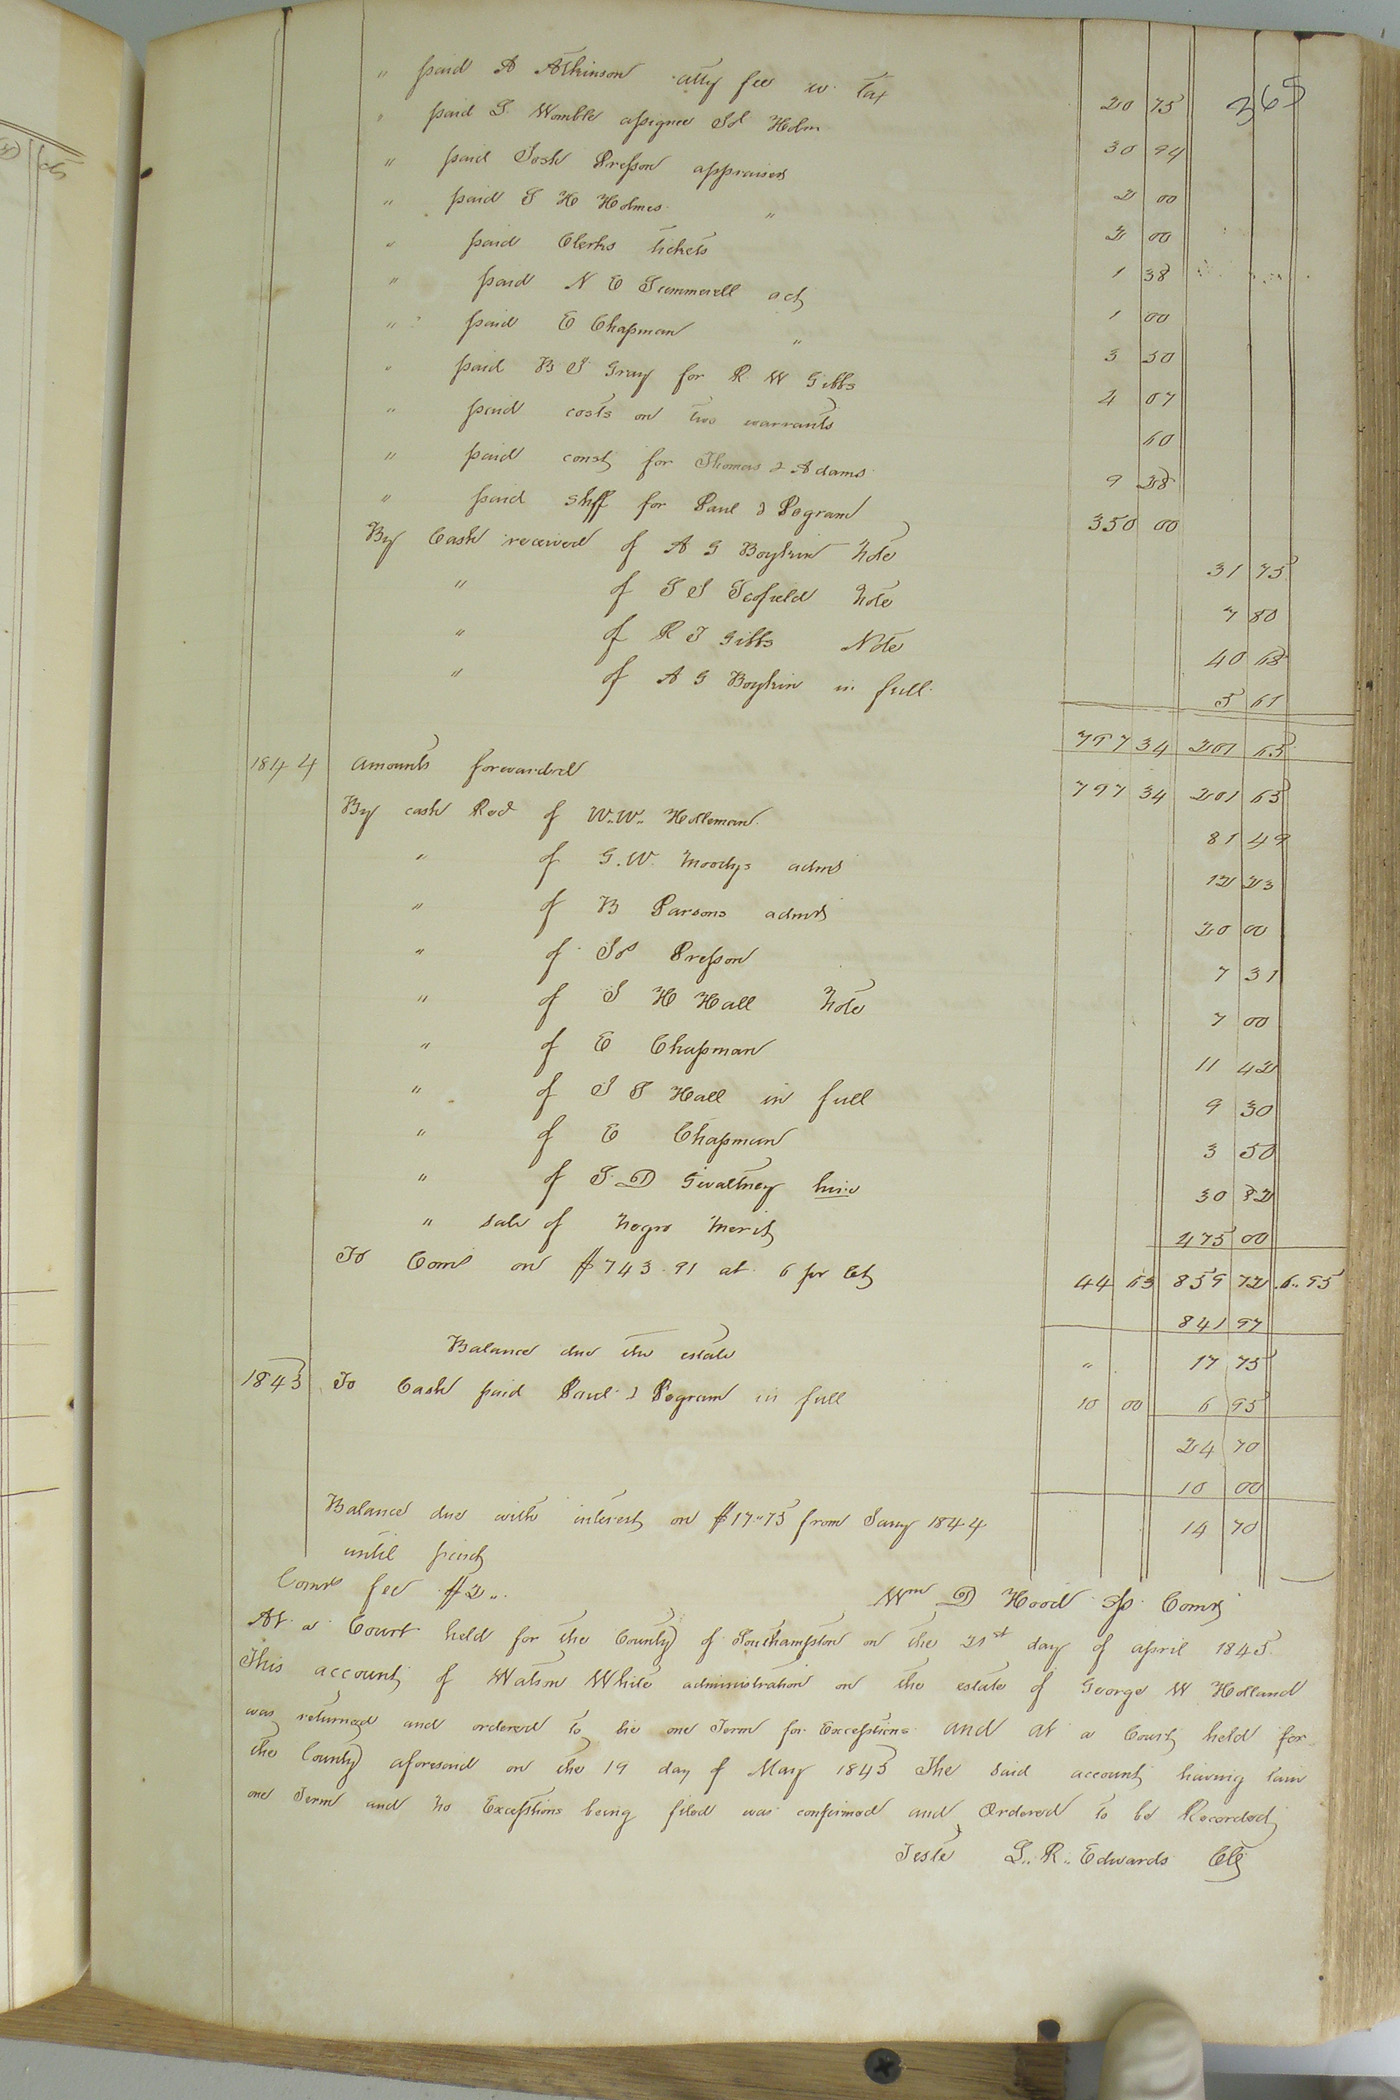 365
" paid A Atkinson atty fee w. tax 20 75
" paid J. Womble assignee Jos Holm 30 94
" paid Josh Presson appraiser 2 00
" paid J H Holmes " 2 00
" paid Clerks tickets 1 38
" paid N E Scammerell act 1 00
" paid E Chapman " 3 50
" paid B S Gray for R W Gibbs 4 07
" paid costs on two warrants 60
" paid const for Thomas & Adams 9 28
" paid shff for Paul & Pegram 350 00
By Cash received of A G Boykin Note 31 75
" of J S Scofield Note 7 80
" of R J Gibbs Note 40 68
" of A G Boykin in full 5 61
797 34 201 65
1844 Amounts forwarded 797 34 201 65
By cash Recd of W.W. Holleman 81 49
" of G.W. Moodys admr 12 23
" of B Parsons admr 20 00
" of Jos Presson 7 31
" of J H Hall Note 7 00
" of E Chapman 11 42
" of J J Hall in full 9 30
" of E Chapman 3 50
" of J. D Gwaltney hire 30 82
" sale of Negro Merit 475 00
To Coms on $743.91 at 6 per Ct 44 63 859 72 6..95
841 97
Balance due the estate " 17 75
1843 To Cash paid Paul & Pegram in full 10 00 6 95
24 70
10 00
Balance due with interest on $17..75 from Jany 1844 14 70
until paid
Comrs fee $2..
Wm D Hood Sp. Comr
At a Court held for the County of Southampton on the 21st day of april 1845
This account of Watson White administration on the estate of George W Holland
was returned and ordered to lie one Term for Exceptions and at a Court held for
the County aforesaid on the 19 day of May 1845 The said account having lain
one Term and no Exceptions being filed was confirmed and Ordered to be Recorded
Teste L.. R.. Edwards Clk